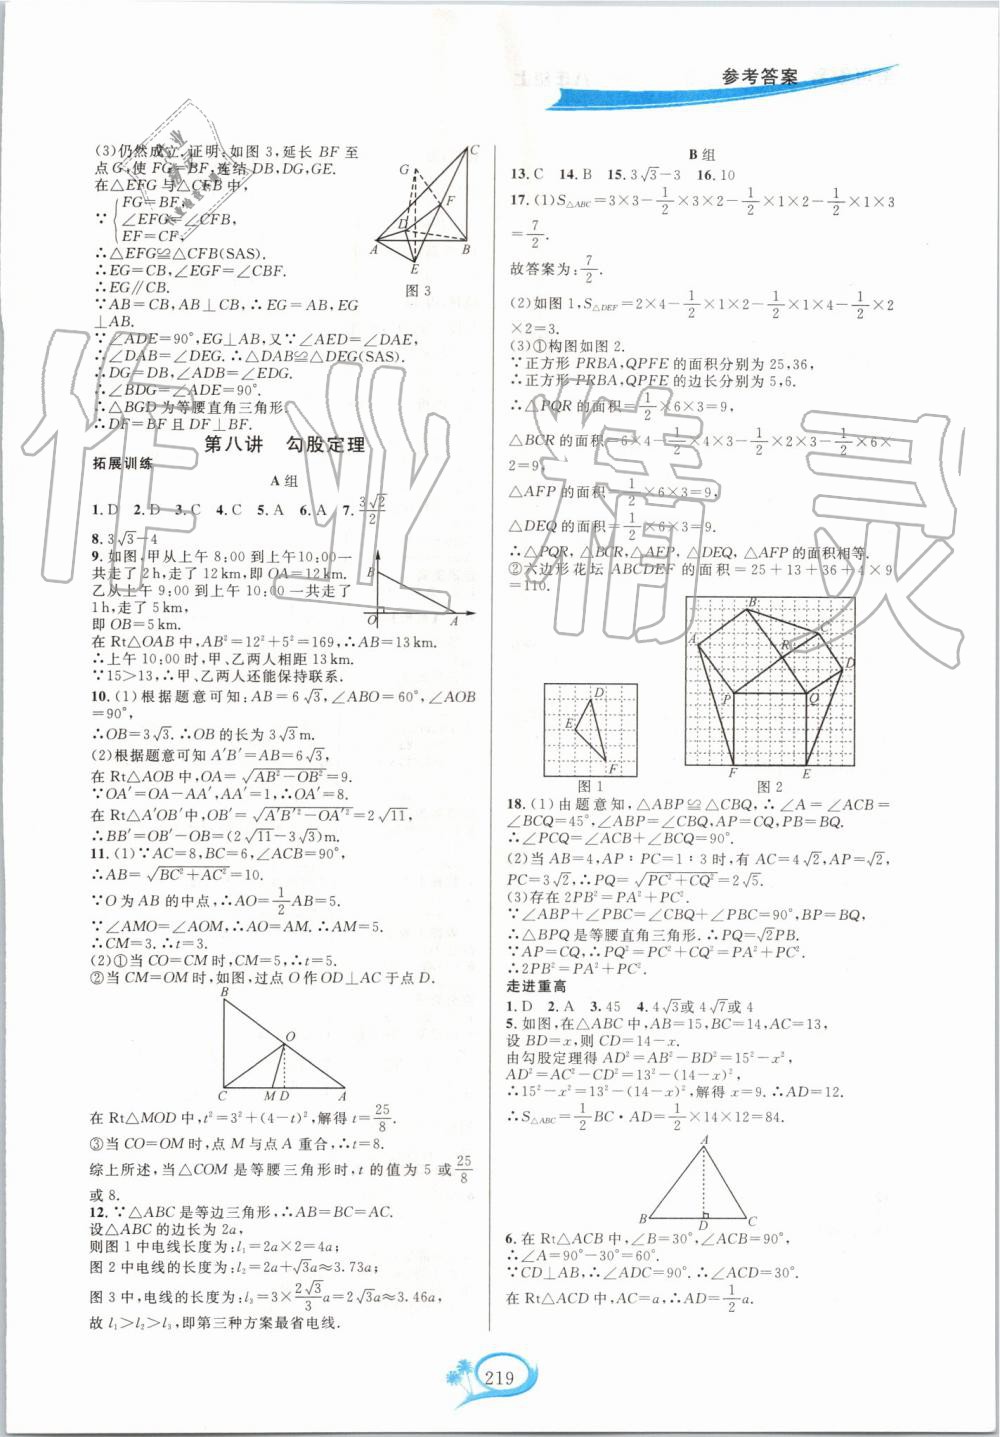 参考答案
(3)仍然成立.证明:如图 3,延长 BF 至
点 G,使 FG=BF,连结 DB,DG,GE.
在△EFG 与△CFB 中,
∵{FG=BF,
∠EFG=∠CFB,
EF=CF,
∴△EFG≌△CFB(SAS).
∴EG=CB,∠EGF=∠CBF.
∴EG∥CB.
∵AB=CB,AB⊥CB,∴EG=AB,EG
⊥AB.
∵∠ADE=90°,EG⊥AB,又∵∠AED=∠DAE,
∴∠DAB=∠DEG.∴△DAB≌△DEG(SAS).
∴DG=DB,∠ADB=∠EDG.
∴∠BDG=∠ADE=90°.
∴△BGD 为等腰直角三角形.
∴DF=BF 且 DF⊥BF.
C
G
F
D
A
B
E
图 3
第八讲 勾股定理
拓展训练
A 组
1. D 2. D 3. C 4. C 5. A 6. A 7. 3√2/2
8. 3√3-4
9. 如图,甲从上午 8:00 到上午 10:00 一
共走了 2 h,走了 12 km,即 OA=12 km.
乙从上午 9:00 到上午 10:00 一共走了
1 h,走了 5 km,
即 OB=5 km.
B
O
A
在 Rt△OAB 中,AB²=12²+5²=169,∴AB=13 km.
∴上午 10:00 时,甲、乙两人相距 13 km.
∵15>13,∴甲、乙两人还能保持联系.
10. (1)根据题意可知:AB=6√3,∠ABO=60°,∠AOB
=90°,
∴OB=3√3.∴OB 的长为 3√3 m.
(2)根据题意可知 A′B′=AB=6√3,
在 Rt△AOB 中,OA=√(AB²-OB²)=9.
∵OA′=OA-AA′,AA′=1,∴OA′=8.
在 Rt△A′OB′中,OB′=√(A′B′²-OA′²)=2√11,
∴BB′=OB′-OB=(2√11-3√3)m.
11. (1)∵AC=8,BC=6,∠ACB=90°,
∴AB=√(BC²+AC²)=10.
∵O 为 AB 的中点,∴AO=1/2 AB=5.
∵∠AMO=∠AOM,∴AO=AM,∴AM=5.
∴CM=3.∴t=3.
(2)①当 CO=CM 时,CM=5,∴t=5.
②当 CM=OM 时,如图,过点 O 作 OD⊥AC 于点 D.
B
O
C M D A
在 Rt△MOD 中,t²=3²+(4-t)²,解得 t=25/8.
③当 CO=OM 时,点 M 与点 A 重合,∴t=8.
综上所述,当△COM 是等腰三角形时,t 的值为 5 或 25/8
或 8.
12. ∵△ABC 是等边三角形,∴AB=BC=AC.
设△ABC 的边长为 2a,
则图 1 中电线长度为:l₁=2a×2=4a;
图 2 中电线的长度为:l₂=2a+√3a≈3.73a;
图 3 中,电线的长度为:l₃=3×2√3/3 a=2√3a≈3.46a,
故 l₁>l₂>l₃,即第三种方案最省电线.
B 组
13. C 14. B 15. 3√3-3 16. 10
17. (1)S△ABC=3×3-1/2×3×2-1/2×1×2-1/2×1×3
=7/2.
故答案为:7/2.
(2)如图 1,S△DEF=2×4-1/2×1×2-1/2×1×4-1/2×2
×2=3.
(3)①构图如图 2.
∵正方形 PRBA,QPFE 的面积分别为 25,36,
∴正方形 PRBA,QPFE 的边长分别为 5,6.
∴△PQR 的面积=1/2×6×3=9,
△BCR 的面积=6×4-1/2×4×3-1/2×3×2-1/2×6×
2=9,
△AFP 的面积=1/2×6×3=9,
△DEQ 的面积=1/2×6×3=9.
∴△PQR,△BCR,△AEP,△DEQ,△AFP 的面积相等.
②六边形花坛 ABCDEF 的面积=25+13+36+4×9
=110.
D
E
F
图 1
B
C
A
R
D
P
Q
F
E
图 2
18. (1)由题意知,△ABP≌△CBQ,∴∠A=∠ACB=
∠BCQ=45°,∠ABP=∠CBQ,AP=CQ,PB=BQ.
∴∠PCQ=∠ACB+∠BCQ=90°.
(2)当 AB=4,AP∶PC=1∶3 时,有 AC=4√2,AP=√2,
PC=3√2,∴PQ=√(PC²+CQ²)=2√5.
(3)存在 2PB²=PA²+PC².
∵∠ABP+∠PBC=∠CBQ+∠PBC=90°,BP=BQ,
∴△BPQ 是等腰直角三角形.∴PQ=√2PB.
∵AP=CQ,∴PQ²=PC²+CQ²=PA²+PC².
∴2PB²=PA²+PC².
走进重高
1. D 2. A 3. 45 4. 4√3或 4√7或 4
5. 如图,在△ABC 中,AB=15,BC=14,AC=13,
设 BD=x,则 CD=14-x.
由勾股定理得 AD²=AB²-BD²=15²-x²,
AD²=AC²-CD²=13²-(14-x)²,
∴15²-x²=13²-(14-x)²,解得 x=9.∴AD=12.
∴S△ABC=1/2 BC·AD=1/2×14×12=84.
A
B D C
6. 在 Rt△ACB 中,∠B=30°,∠ACB=90°,
∴∠A=90°-30°=60°.
∵CD⊥AB,∴∠ADC=90°.∴∠ACD=30°.
在 Rt△ACD 中,AC=a,∴AD=1/2 a.
219
作业精灵